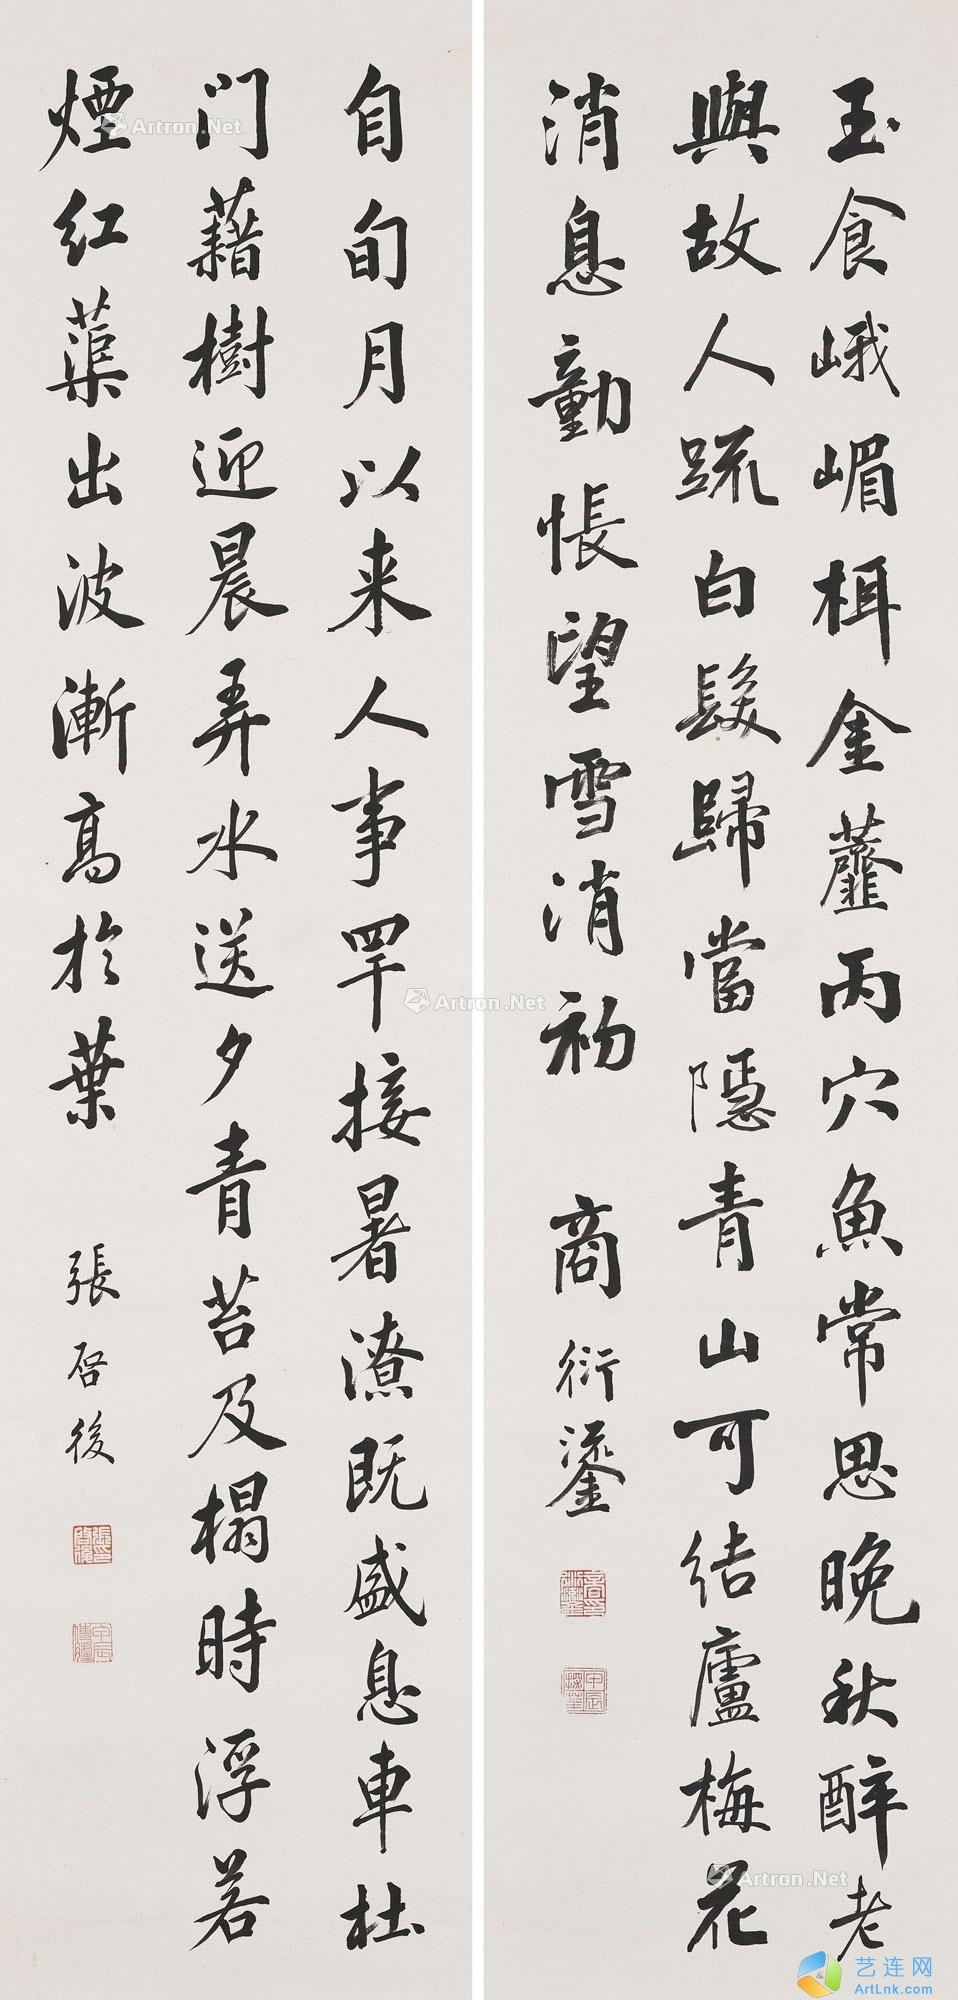 玉食峨嵋栮金虀丙穴魚常思晚秋醉老
與故人疏白髮歸當隱青山可結廬梅花
消息動悵望雪消初
商衍鎏
甲辰探華
自旬月以来人事罕接暑潦既盛息車杜
门藉樹迎晨弄水送夕青苔及榻時浮若
煙红蕖出波漸高於葉
張启後
Artron.Net
Artron.Net
Artron.Net
艺连网
ArtLnk.com